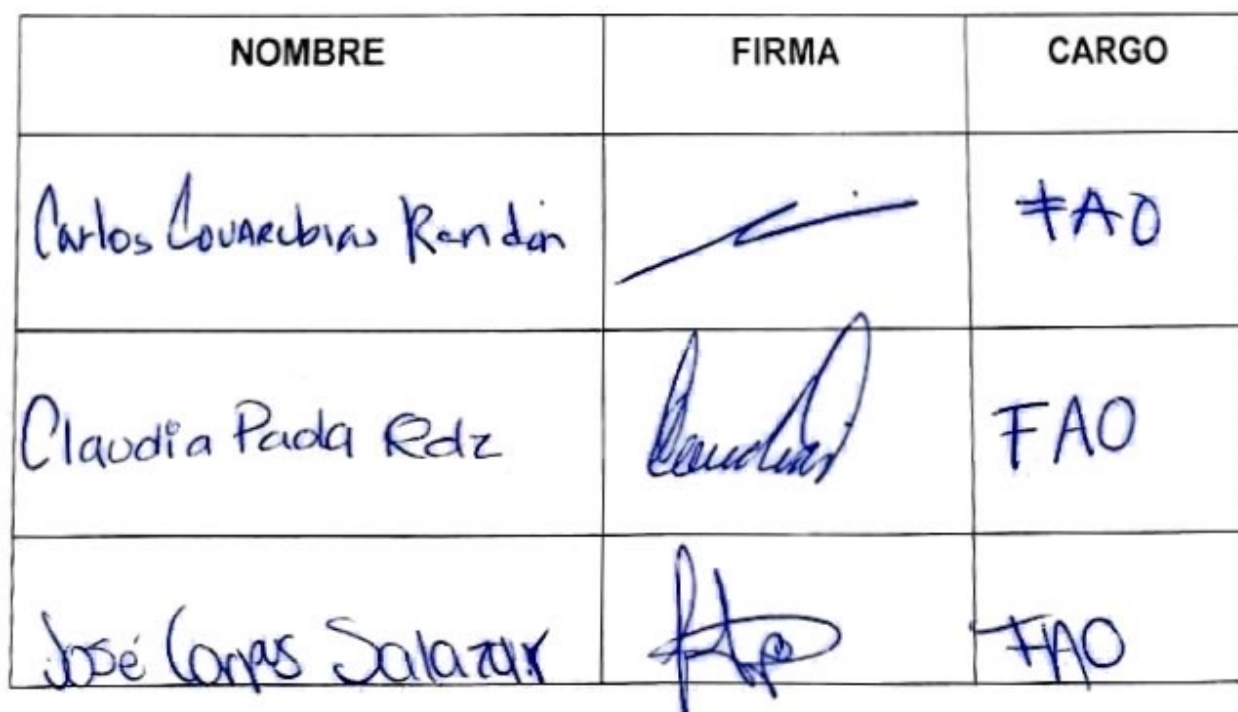 NOMBRE FIRMA CARGO
Carlos Covarubias Rendon FAO
Claudia Pada Rdz FAO
José Salazar FAO